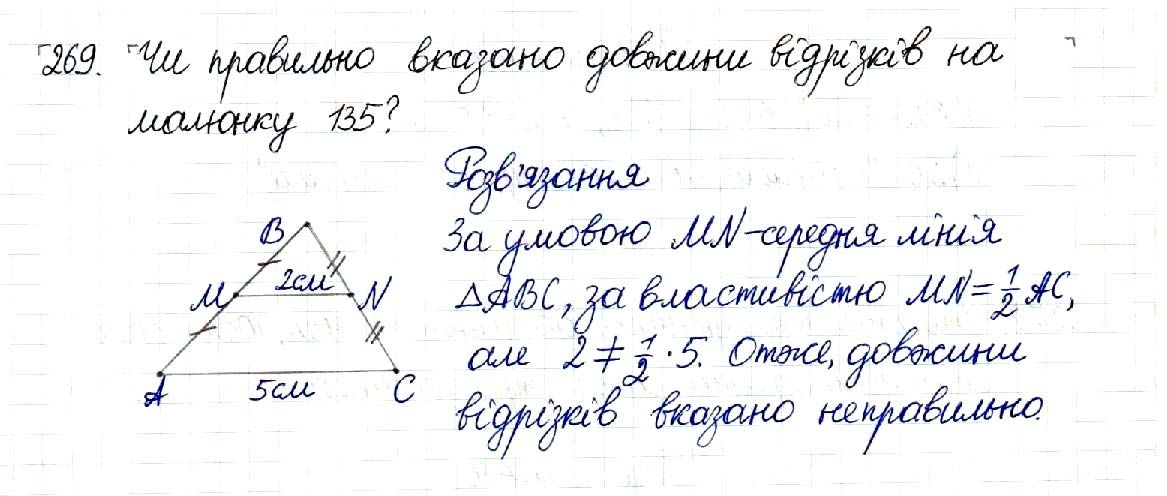 269. Чи правильно вказано довжини відрізків на
малюнку 135?
Розв'язання
За умовою MN-середня лінія
△ABC, за властивістю MN = 1/2 AC,
але 2 ≠ 1/2 · 5. Отже, довжини
відрізків вказано неправильно.
B
2см
M
N
A
5см
C